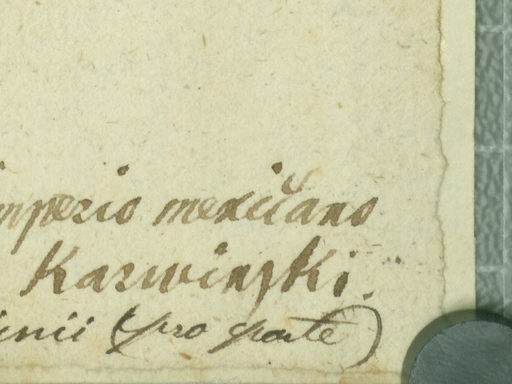 imperio mexicano
Karwinski.
inii (pro parte)